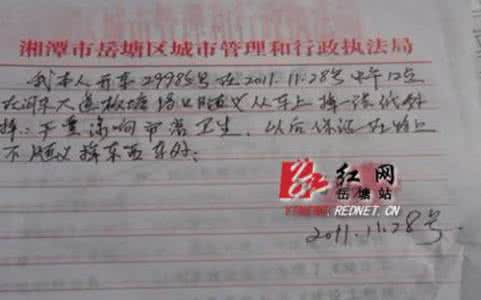 湘潭市岳塘区城市管理和行政执法局
我本人开车29985号在2011.11.28号中午12点
在河东大道板塘路口随义从车上摔一张纸外
摔。严重影响市容卫生，以后保证在路上
不随义摔东西车外；
红网
岳塘站
REDNET.CN
2011.11.28号.